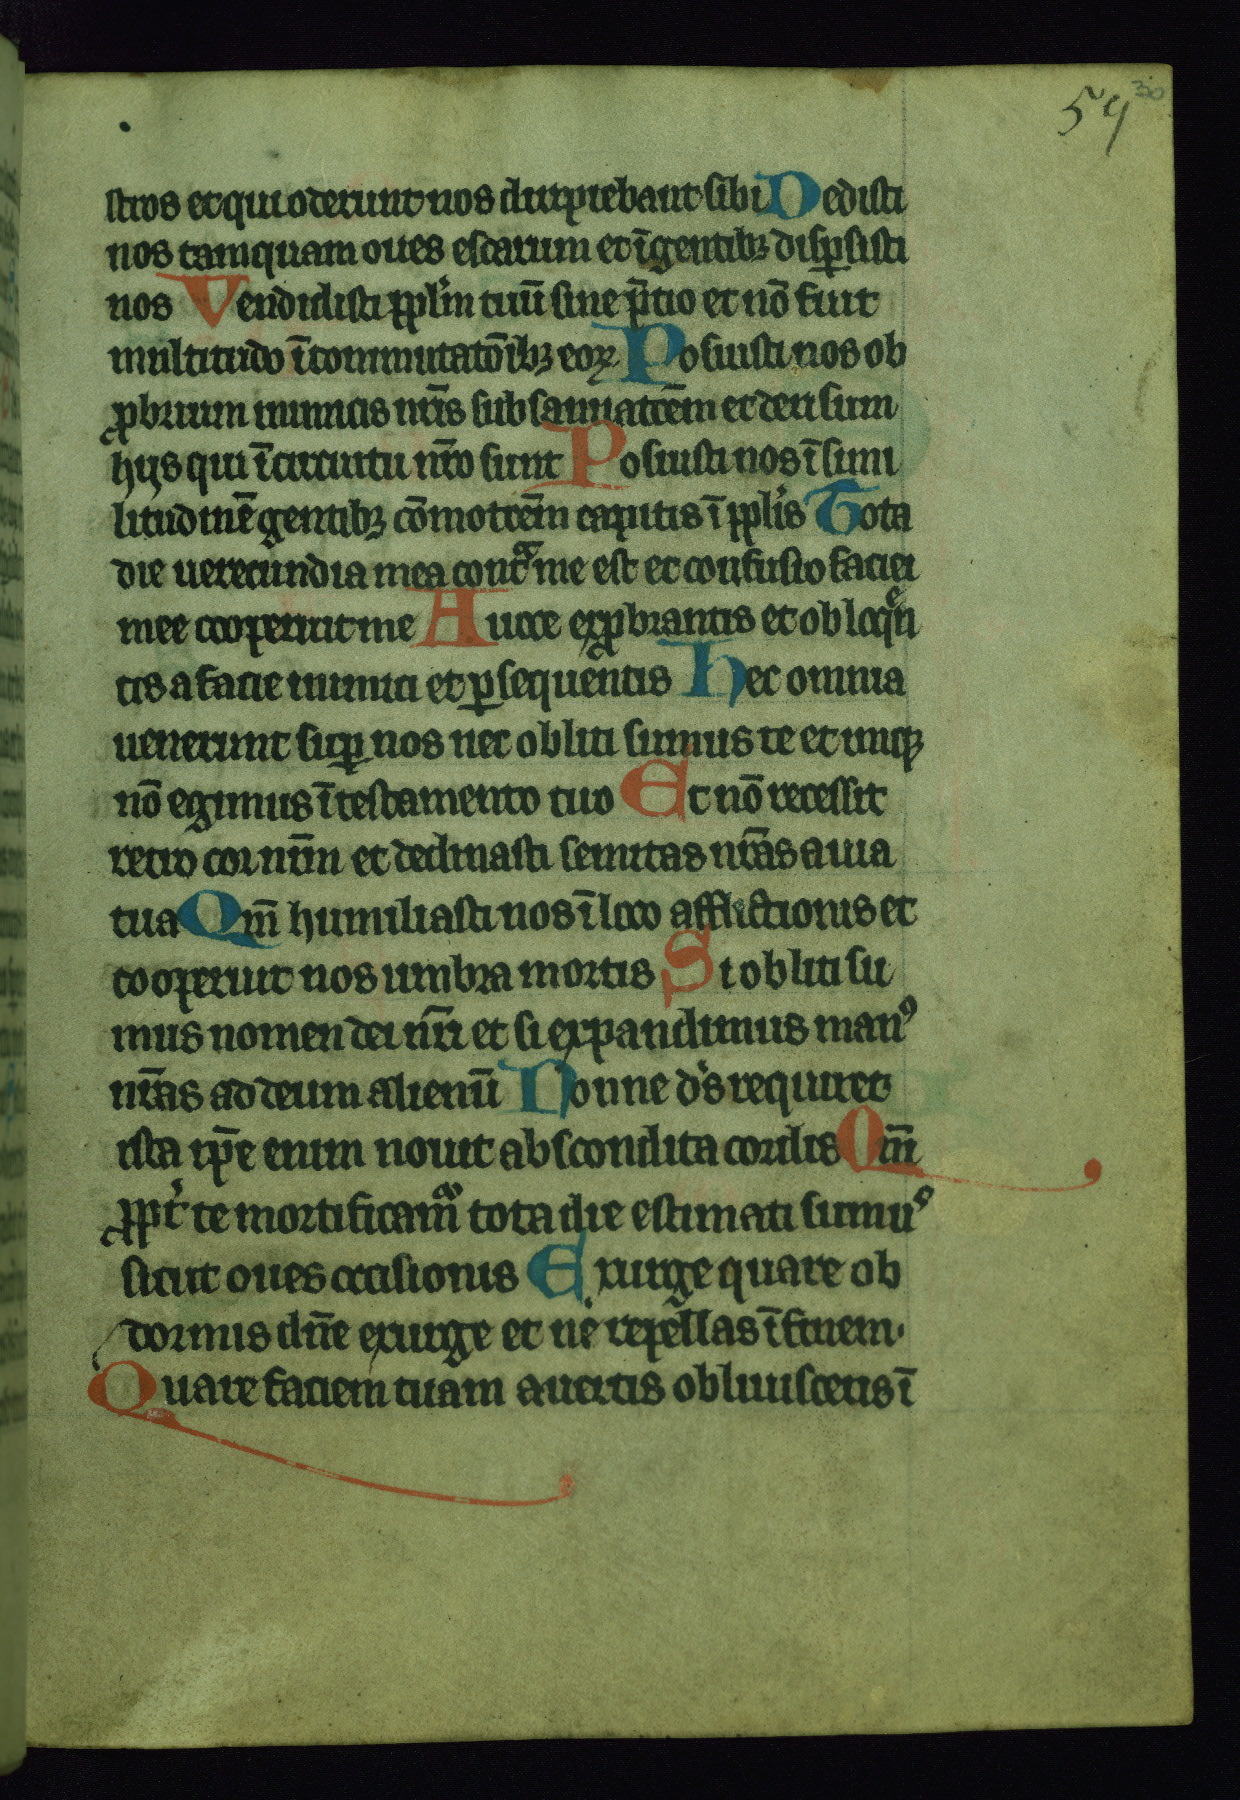 54 30
stros et qui oderunt nos diripiebant sibi Dedisti
nos tamquam oues escarum et ī gentibꝫ disꝑsisti
nos Vendidisti pplm̄ tuū sine p̄tio et nō fuit
multitudo ī commutatōibꝫ eoꝝ Posuisti nos ob
ꝓbrium uicinis nr̄is subsannatōem et derisum
hijs qui ī circuitu nr̄o sunt Posuisti nos ī simi
litudinē gentibꝫ cōmotōem capitis ī pplis Tota
die uerecundia mea contᵃ me est et confusio faciei
mee cooperuit me A uoce exꝓbrantis et obloqᵉn
tis a facie inimici et ꝑsequentis Hec omnia
uenerunt suꝑ nos nec obliti sumus te et iniqꝫ
nō egimus ī testamento tuo Et nō recessit
retro cor nr̄m et declinasti semitas nr̄as a uia
tua Qm̄ humiliasti nos ī loco afflictionis et
cooperuit nos umbra mortis Si obliti su
mus nomen dei nr̄i et si expandimus manꝰ
nr̄as ad deum alienū Nonne ds requiret
ista ip̄e enim nouit abscondita cordis Qm̄
ꝓpt̄ te mortificamᵃ tota die estimati sumuˢ
sicut oues occisionis Exurge quare ob
dormis dn̄e exurge et ne repellas ī finem.
Quare faciem tuam auertis obliuisceris ī